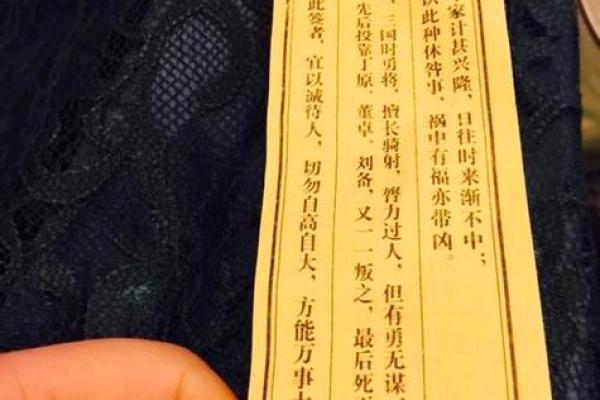 家计甚兴隆，日往时来渐不中；
此种休咎事，祸中有福亦带凶。
三国时勇将，擅长骑射，膂力过人，但有勇无谋
先后投靠丁原、董卓、刘备，又一一叛之，最后死
此签者，宜以诚待人，切勿自高自大，方能万事